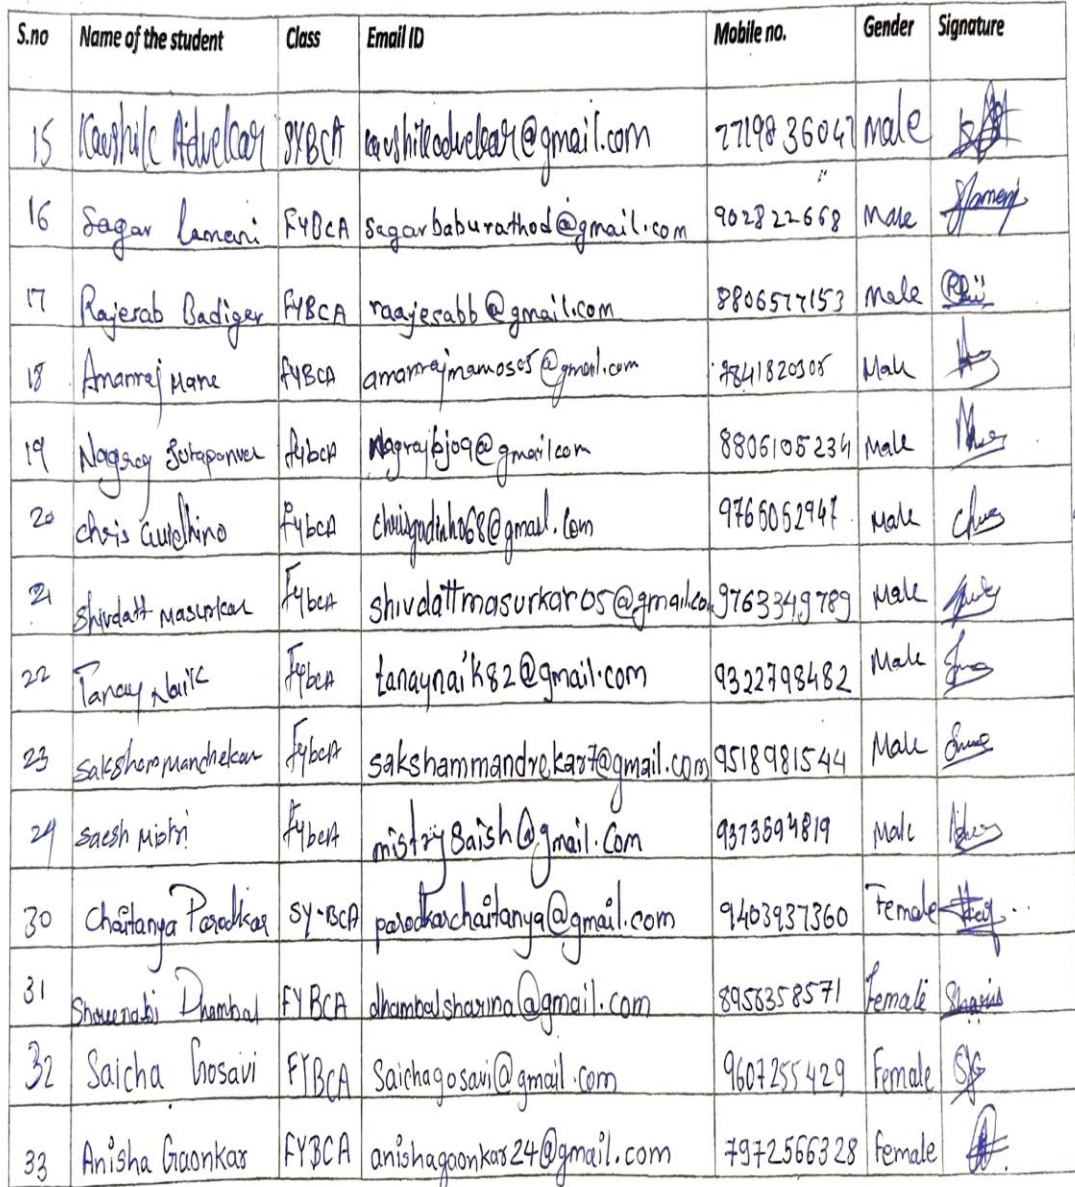 S.no Name of the student Class Email ID Mobile no. Gender Signature
15 Kaushik Advelkar SYBCA kaushikadvelkar@gmail.com 7719836047 male
16 Sagar Lamani FYBCA sagarbaburathod@gmail.com 902822668 Male
17 Rajesab Badiger FYBCA raajesabb@gmail.com 8806577153 Male
18 Amanraj Mane FYBCA 7841820305 Male
19 Fybca 8806105234 Male
20 Chris Fybca 9765052947 Male
21 Shivdatt Masurkar Fybca shivdattmasurkar05@gmail.co 9763349789 Male
22 Tanay Naik Fybca tanaynaik82@gmail.com 9322798482 Male
23 Fybca sakshammandrekar7@gmail.com 9518981544 Male
24 Saesh Mistri Fybca mistrySaish@gmail.com 9373594819 Male
30 Chaitanya Parodkar SY-BCA parodkarchaitanya@gmail.com 9403937360 Female
31 Dhambal FYBCA dhambalsharina@gmail.com 8956358571 Female
32 Saicha Gosavi FYBCA Saichagosavi@gmail.com 9607255429 Female
33 Anisha Gaonkar FYBCA anishagaonkar24@gmail.com 7972566328 Female